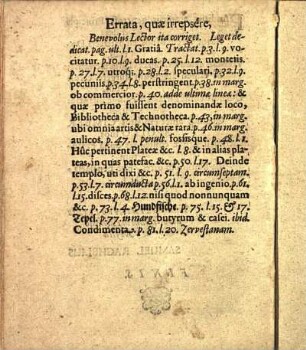 Errata, quæ irrepsêre,
Benevolus Lector ita corriget. Leget de-
dicat. pag. ult. l.1. Gratiâ. Tractat. p.3. l.9. vo-
citatur. p.10. l.9. ducas. p.25. l.12. montetis.
p.27. l.7. utroq;. p.28. l.2. speculari. p.32. l.9.
pecuniis p.34. l.8. perstringent. p.38. in marg.
ob commercior. p.40. adde ultimæ lineæ: &
quæ primo fuissent denominandæ loco,
Bibliotheca & Technotheca. p.43. in marg.
ubi omnia artis & Naturæ rara. p.46. in marg.
aulicos. p.47. l. penult. fossisque. p.48. l.1.
Hûc pertinent Plateæ &c. l.8. & in alias pla-
teas, in quas patefac. &c. p.50. l.17. Deinde
templo, uti dixi &c. p.51. l.9. circumseptam.
p.53. l.7. circumducta p.56. l.1. ab ingenio. p.61.
l.15. disces. p.68. l.12. nisi quod nonnunquam
& c. p.73. l.4. Hundsfische. p.75. l.15. & 17.
Zepel. p.77. in marg. butyrum & casei. ibid.
Condimenta. p.81. l.20. Zervestanam.
SAMUEL RACHELIUS